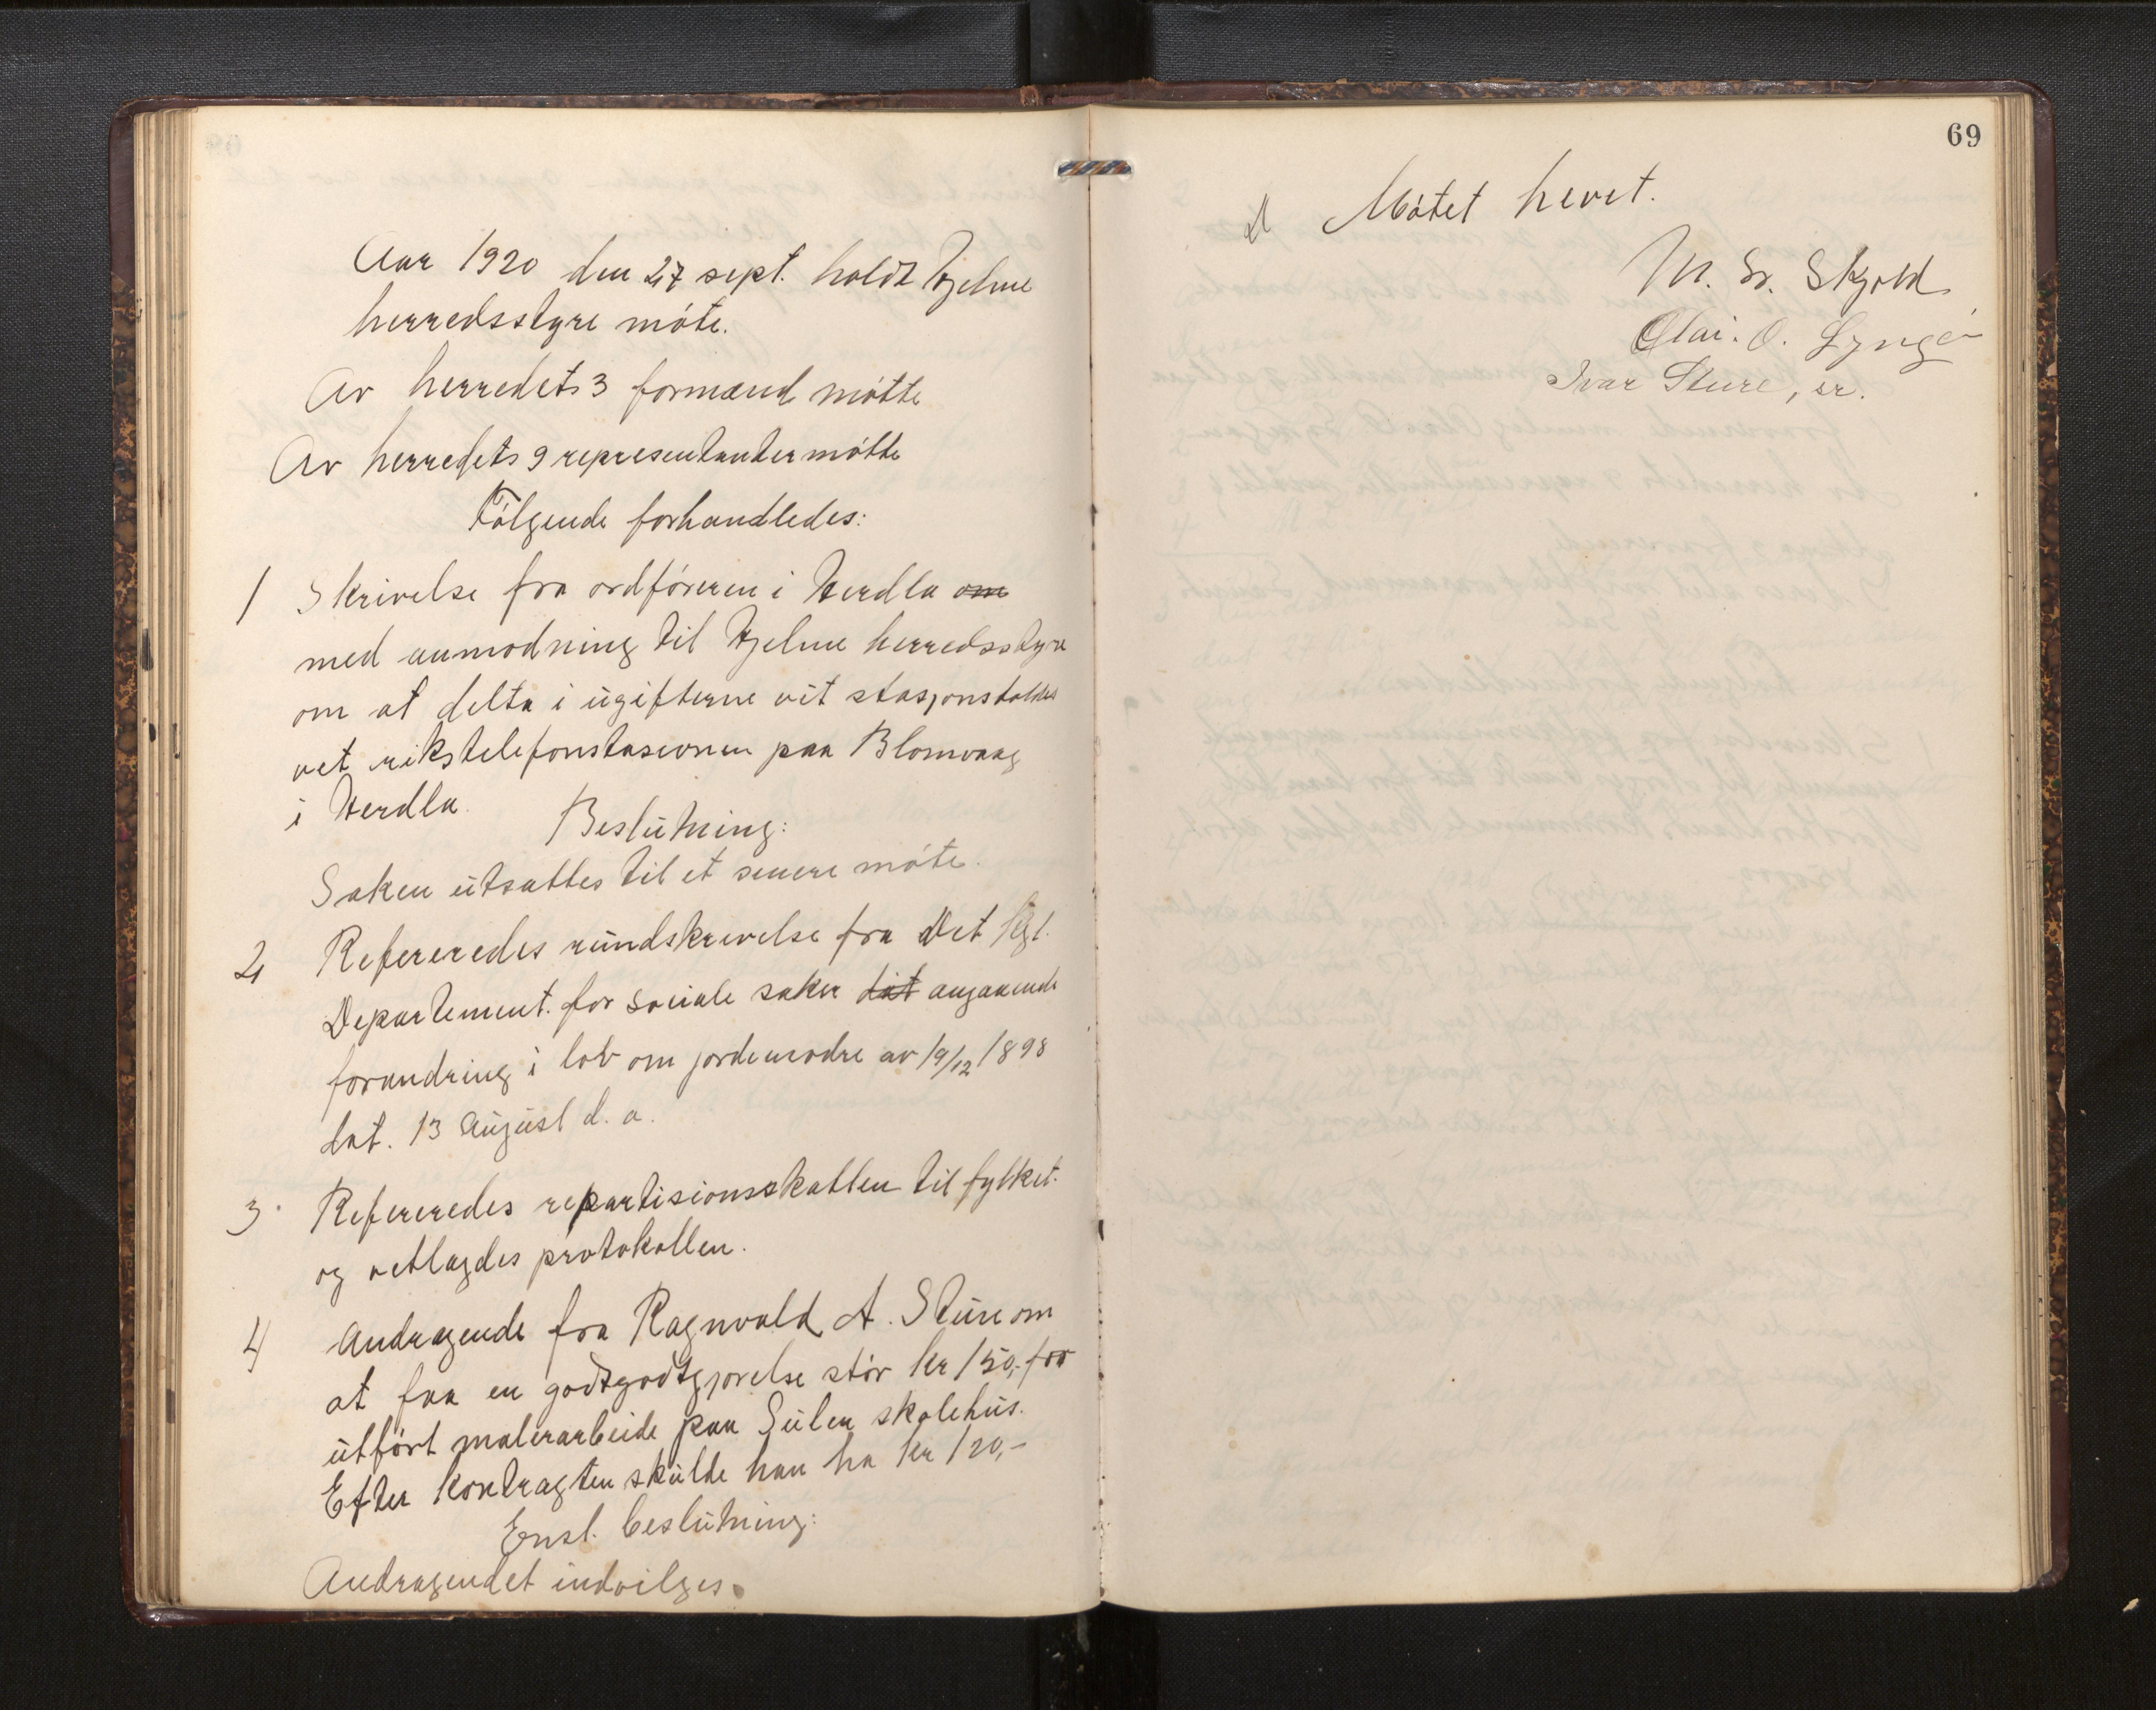 Aar 1920 den 27 sept. holdt Hjelme
herredsstyre møte.
Av herredets 3 formænd møtte
Av herredets 9 representanter møtte
Følgende forhandledes:
1 Skrivelse fra ordføreren i Herdla om
med anmodning til Hjelme herredsstyre
om at delta i ugifterne vit stasjonsholdet
vet rikstelefonstasionen paa Blomvaag
i Herdla.
Beslutning:
Saken utsattes til et senere møte.
2 Refereredes rundskrivelse fra Det Kgl.
Departement. for sociale saker dat angaaende
forandring i lov om jordemødre av 19/12 1898
dat. 13 August d. a.
3 Refereredes repartisionsskatten til fylket.
og vetlagdes protokollen.
4 Andragende fra Ragnvald A. Sture om
at faa en godtgodtgjørelse stór kr 150,- for
utført malerarbeide paa Sulen skolehus.
Efter kontragten skulde han ha kr 120,-
Ensl. beslutning:
Andragendet indvilges.
69
Møtet hevet.
M. Sr. Skjold
Olai. O. Lyngø
Ivar Sture, sr.